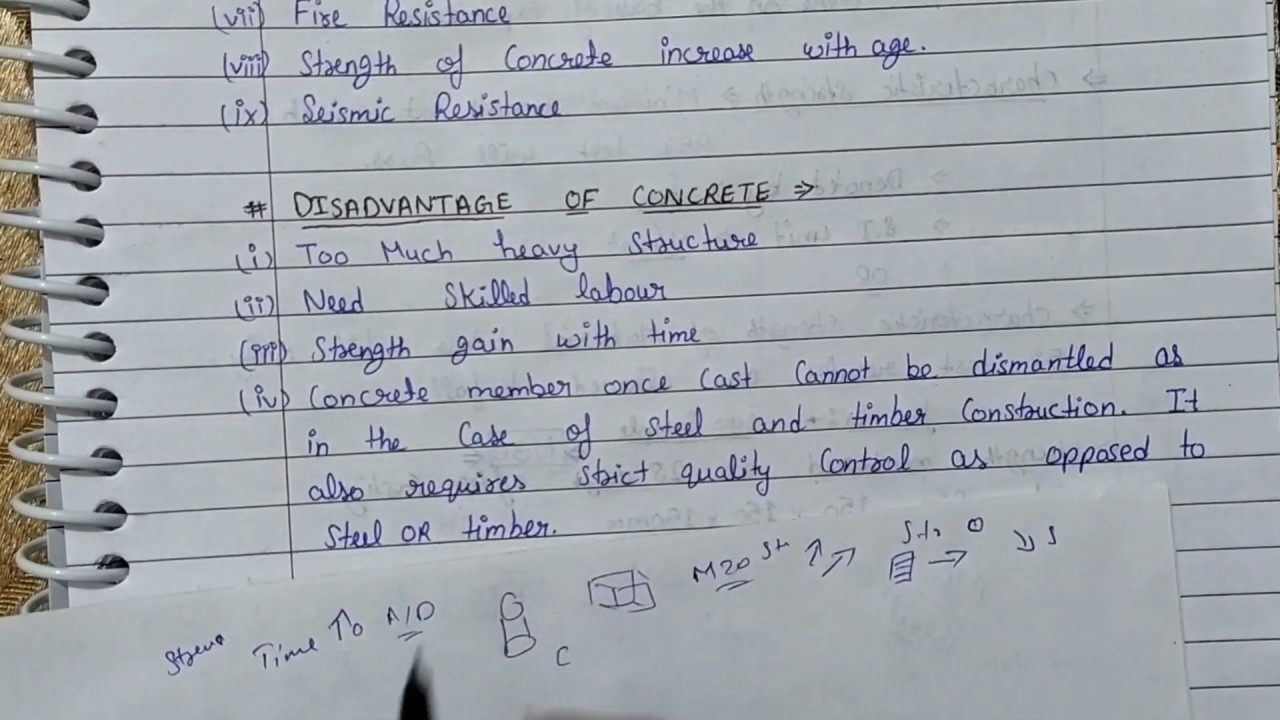 (vii) Fire Resistance
(viii) Strength of Concrete increase with age.
(ix) Seismic Resistance
# DISADVANTAGE OF CONCRETE ⇒
(i) Too Much heavy structure
(ii) Need skilled labour
(iii) Strength gain with time
(iv) Concrete member once cast cannot be dismantled as
in the case of steel and timber construction. It
also requires strict quality control as opposed to
steel OR timber.
Time ↑ A/D C M20 St ↑↑